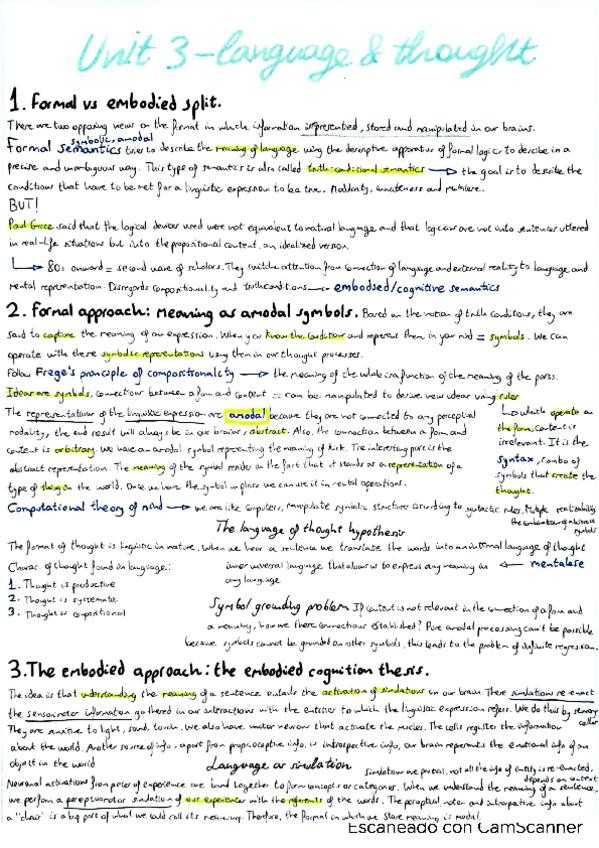 Unit 3 - language & thought
1. Formal vs embodied split.
There are two opposing views on the format in which information is represented, stored and manipulated in our brains.
symbolic, amodal
Formal semantics tries to describe the meaning of language using the descriptive apparatus of formal logic to describe in a
precise and unambiguous way. This type of semantics is also called truth-conditional semantics → the goal is to describe the
conditions that have to be met for a linguistic expression to be true.
BUT!
Paul Grice said that the logical devices used were not equivalent to natural language and that logicians are not into sentences uttered
in real-life situations but into the propositional content, an idealized version.
→ 80s onward = second wave of scholars. They switch attention from connection of language and external reality to language and
mental representation. Disregards compositionality and truth conditions → embodied/cognitive semantics
2. Formal approach: meaning as amodal symbols. Based on the notion of truth conditions, they are
said to capture the meaning of an expression. When you know the conditions and represent them in your mind = symbols. We can
operate with these symbolic representations using them in our thought processes.
Follow Frege's principle of compositionality → the meaning of the whole is a function of the meaning of the parts.
Ideas are symbols, connections between a form and content = can be manipulated to derive new ideas using rules
The representations of the linguistic expression are amodal because they are not connected to any perceptual
→ which operate on
modality, the end result will always be in our brains, abstract. Also, the connection between a form and
the form, content is
content is arbitrary. We have an amodal symbol representing the meaning of kick. The interesting part is the
irrelevant. It is the
abstract representation. The meaning of the symbol resides in the fact that it stands as a representation of a
syntax, combo of
type of thing in the world. Once we have the symbol in place we can use it in mental operations.
symbols that create the
thought.
Computational theory of mind → we are like computers, manipulate symbolic structures according to syntactic rules. Multiple realizability
The language of thought hypothesis
The format of thought is linguistic in nature. When we hear a sentence we translate the words into an internal language of thought
Charac. of thought found in language:
inner universal language that allows us to express any meaning in ← mentalese
any language
1. Thought is productive
2. Thought is systematic
3. Thought is compositional
Symbol grounding problem If content is not relevant in the connection of a form and
a meaning, how are these connections established? Pure amodal processing can't be possible
because symbols cannot be grounded on other symbols, this leads to the problem of infinite regression.
3. The embodied approach: the embodied cognition thesis.
The idea is that understanding the meaning of a sentence entails the activation of simulations in our brain. These simulations re-enact
the sensorimotor information gathered in our interactions with the entities to which the linguistic expression refers. We do this by sensory
cells
They are sensitive to light, sound, touch. We also have motor neurons that activate the muscles. The cells register the information
about the world. Another source of info, apart from proprioceptive info, is introspective info, our brain represents the emotional info of an
object in the world
Language as simulation
Simulations are partial, not all the info of entity is re-enacted,
depends on context
Neuronal activations from prior experience are bound together to form concepts or categories. When we understand the meaning of a sentence,
we perform a perceptuomotor simulation of our experiences with the referents of the words. The perceptual, motor and introspective info about
a "chair" is a big part of what we could call its meaning. Therefore, the format in which we store meaning is modal.
Escaneado con CamScanner